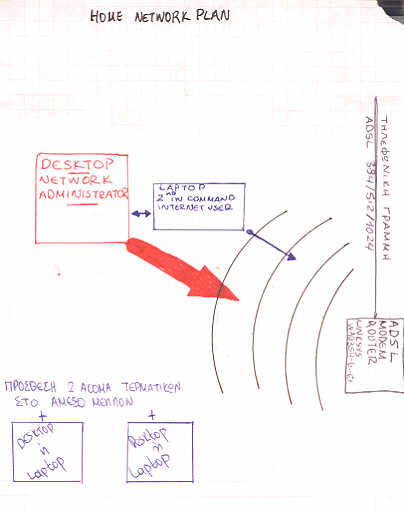 HOME NETWORK PLAN
DESKTOP
NETWORK
ADMINISTRATOR
LAPTOP
2nd IN COMMAND
INTERNET USER
ΤΗΛΕΦΩΝΙΚΗ ΓΡΑΜΜΗ
ADSL 384/512/1024
ADSL
MODEM
ROUTER
LINKSYS
ΠΡΟΣΘΕΣΗ 2 ΑΚΟΜΑ ΤΕΡΜΑΤΙΚΩΝ
ΣΤΟ ΑΜΕΣΟ ΜΕΛΛΟΝ
+
+
DESKTOP
ή
Laptop
Desktop
ή
Laptop